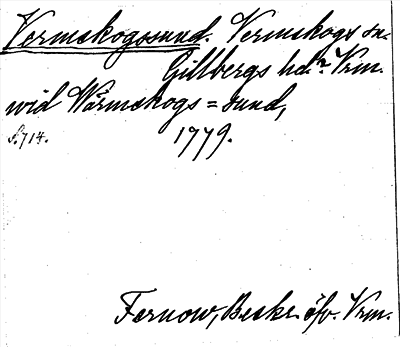 Vermskogssund. Vermskogs sn.
Gillbergs hd. Vrm.
wid Wärmskogs=sund,
s.714. 1779.
Fernow, Beskr. öfv. Vrm.